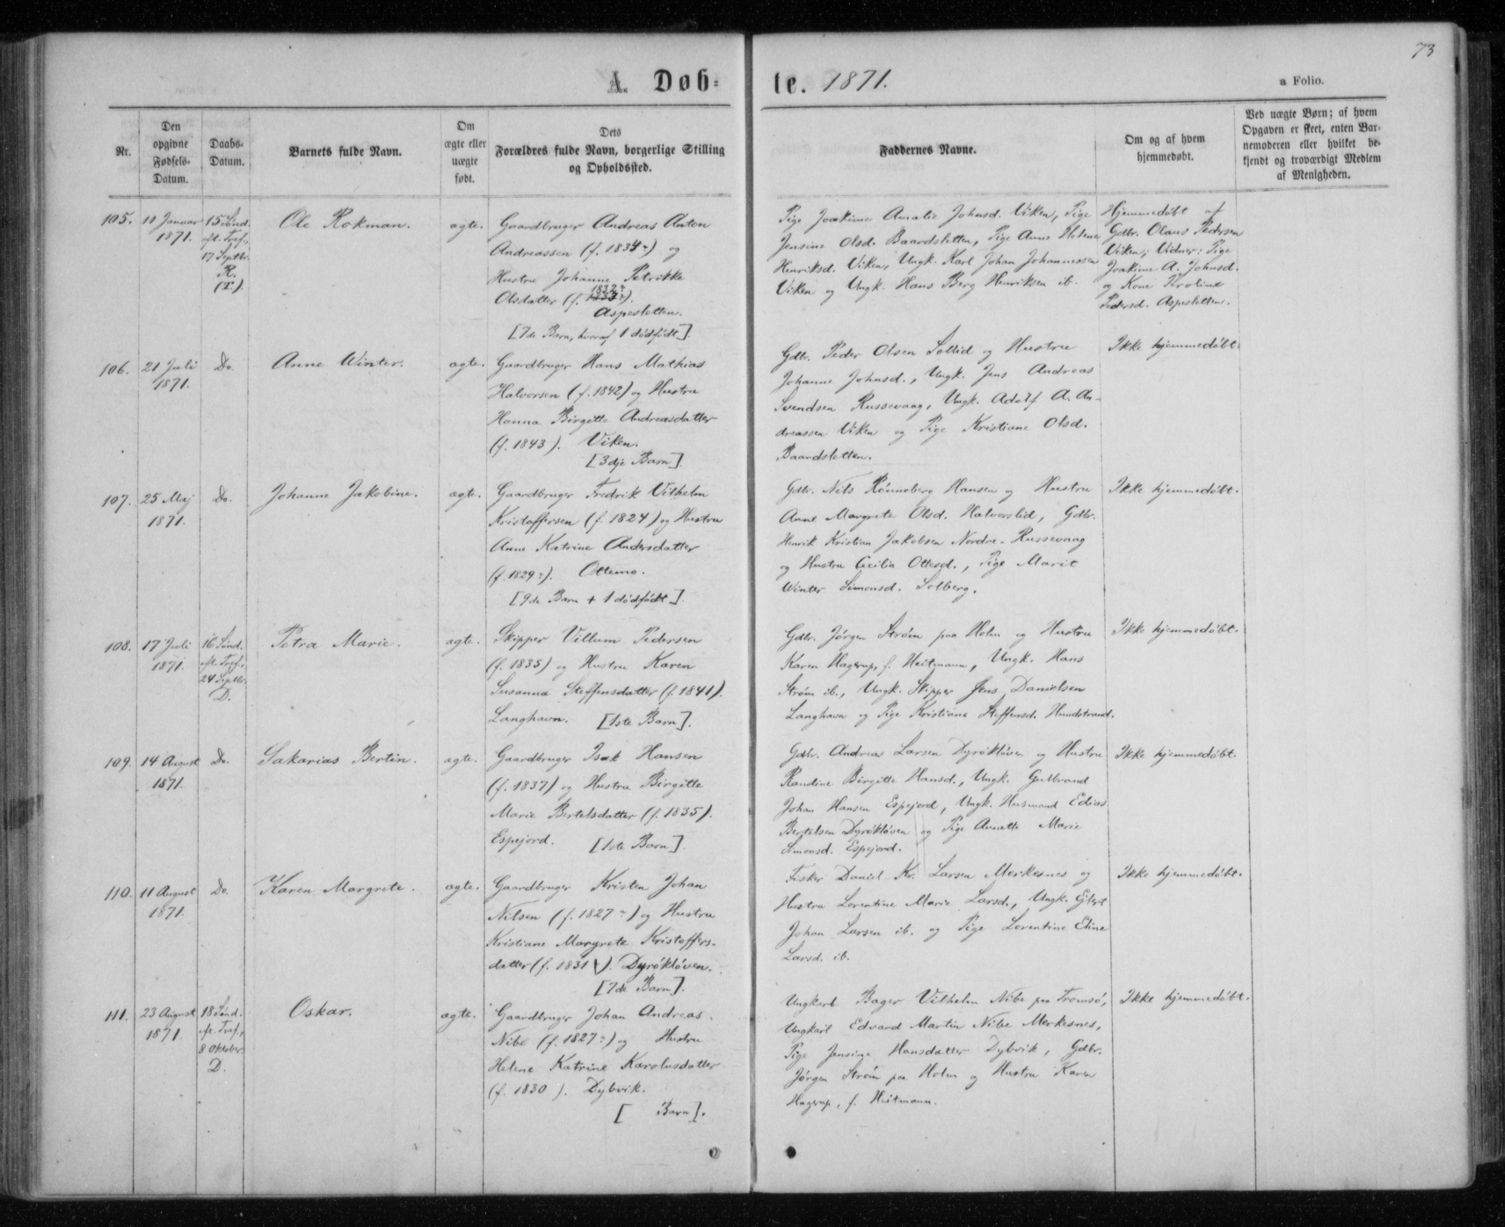 73
A. Døb-
te. 1871.
a Folio.
Nr.
Den
opgivne
Fødsels-
Datum.
Daabs-
Datum.
Barnets fulde Navn.
Om
ægte eller
uægte
født.
Dets
Forældres fulde Navn, borgerlige Stilling
og Opholdssted.
Faddernes Navne.
Om og af hvem
hjemmedøbt.
Ved uægte Børn; af hvem
Opgaven er skeet, enten Bar-
nemoderen eller hvilket be-
kjendt og troværdigt Medlem
af Menigheden.
105.
10 Januar
1871.
15 Sønd.
eft. Tref.,
17 Septbr.
R.
(x)
Ole Rokman.
ægte.
Gaardbruger Andreas Anton
Andreassen (f. 1834) og
Hustru Johanne Petrikke
Olsdatter (f. 1832).
Aspesletten.
[7de Barn, hvoraf 1 dødfødt]
Pige Joakime Amalie Johnsd. Viken, Pige
Jensine Olsd. Baardsletten, Pige Anne Helene
Henriksd. Viken, Ungk. Karl Johan Johannessen
Viken og Ungk. Hans Berg Henriksen ib.
Hjemmedøbt af
Gdbr. Olaus Pedersen
Viken; Vidner: Pige
Joakime A. Johnsd.
og Kone Karoline
Pedersd. Aspesletten.
106.
21 Juli
1871.
Do.
Anne Winter.
ægte.
Gaardbruger Hans Mathias
Halvorsen (f. 1842) og Hustru
Hanna Birgitte Andreasdatter
(f. 1843). Viken.
[3dje Barn]
Gdbr. Peder Olsen Sollid og Hustru
Johanne Johnsd., Ungk. Jens Andreas
Svendsen Russevaag, Ungk. Adolf A. An-
dreassen Viken og Pige Kristiane Olsd.
Baardsletten.
Ikke hjemmedøbt.
107.
25 Maj
1871.
Do.
Johanne Jakobine.
ægte.
Gaardbruger Fredrik Vilhelm
Kristoffersen (f. 1824) og Hustru
Anne Katrine Andersdatter
(f. 1829). Ottemo.
[9de Barn + 1 dødfødt].
Gdbr. Nils Rønneberg Hansen og Hustru
Anne Margrete Olsd. Halvorslid, Gdbr.
Henrik Kristian Jakobsen Nordre-Russevaag
og Hustru Cecilia Ottesd., Pige Marit
Winter Simonsd. Solberg.
Ikke hjemmedøbt.
108.
17 Juli
1871.
16 Sønd.
eft. Tref.,
24 Septbr.
D.
Petra Marie.
ægte.
Skipper Villum Pedersen
(f. 1835) og Hustru Karen
Susanna Steffensdatter (f. 1841).
Langhavn. [1ste Barn].
Gdbr. Jørgen Strøm paa Holm og Hustru
Karen Hagerup, f. Heitmann, Ungk. Hans
Strøm ib., Ungk. Skipper Jens Danielsen
Langhavn og Pige Kristiane Steffensd. Hundstrand.
Ikke hjemmedøbt.
109.
14 August
1871.
Do.
Sakarias Bertin.
ægte.
Gaardbruger Isak Hansen
(f. 1837) og Hustru Birgitte
Marie Bertelsdatter (f. 1835).
Espejord. [1ste Barn].
Gdbr. Andreas Larsen Dyrökløven og Hustru
Randine Birgitte Hansd., Ungk. Gulbrand
Johan Hansen Espejord, Ungk. Husmand Edias
Bertelsen Dyrökløven og Pige Annette Marie
Simonsd. Espejord.
Ikke hjemmedøbt.
110.
11 August
1871.
Do.
Karen Margrete.
ægte.
Gaardbruger Kristen Johan
Nilsen (f. 1827) og Hustru
Kristiane Margrete Kristoffers-
datter (f. 1831). Dyrökløven.
[7de Barn].
Fisker Daniel Kr. Larsen Merkesnes og
Hustru Lorentine Marie Larsd., Ungk. Eilert
Johan Larsen ib. og Pige Lorentine Eline
Larsd. ib.
Ikke hjemmedøbt.
111.
23 August
1871.
18 Sønd.
eft. Tref.,
8 Oktober
D.
Oskar.
ægte.
Gaardbruger Johan Andreas
Nibe (f. 1827) og Hustru
Helene Katrine Karolusdatter
(f. 1830). Dybvik.
[ Barn].
Ungkarl Bager Vilhelm Nibe paa Tromsø,
Ungkarl Edvard Martin Nibe Merkesnes,
Pige Jensine Hansdatter Dybvik, Gdbr.
Jørgen Strøm paa Holm og Hustru Karen
Hagerup, f. Heitmann.
Ikke hjemmedøbt.